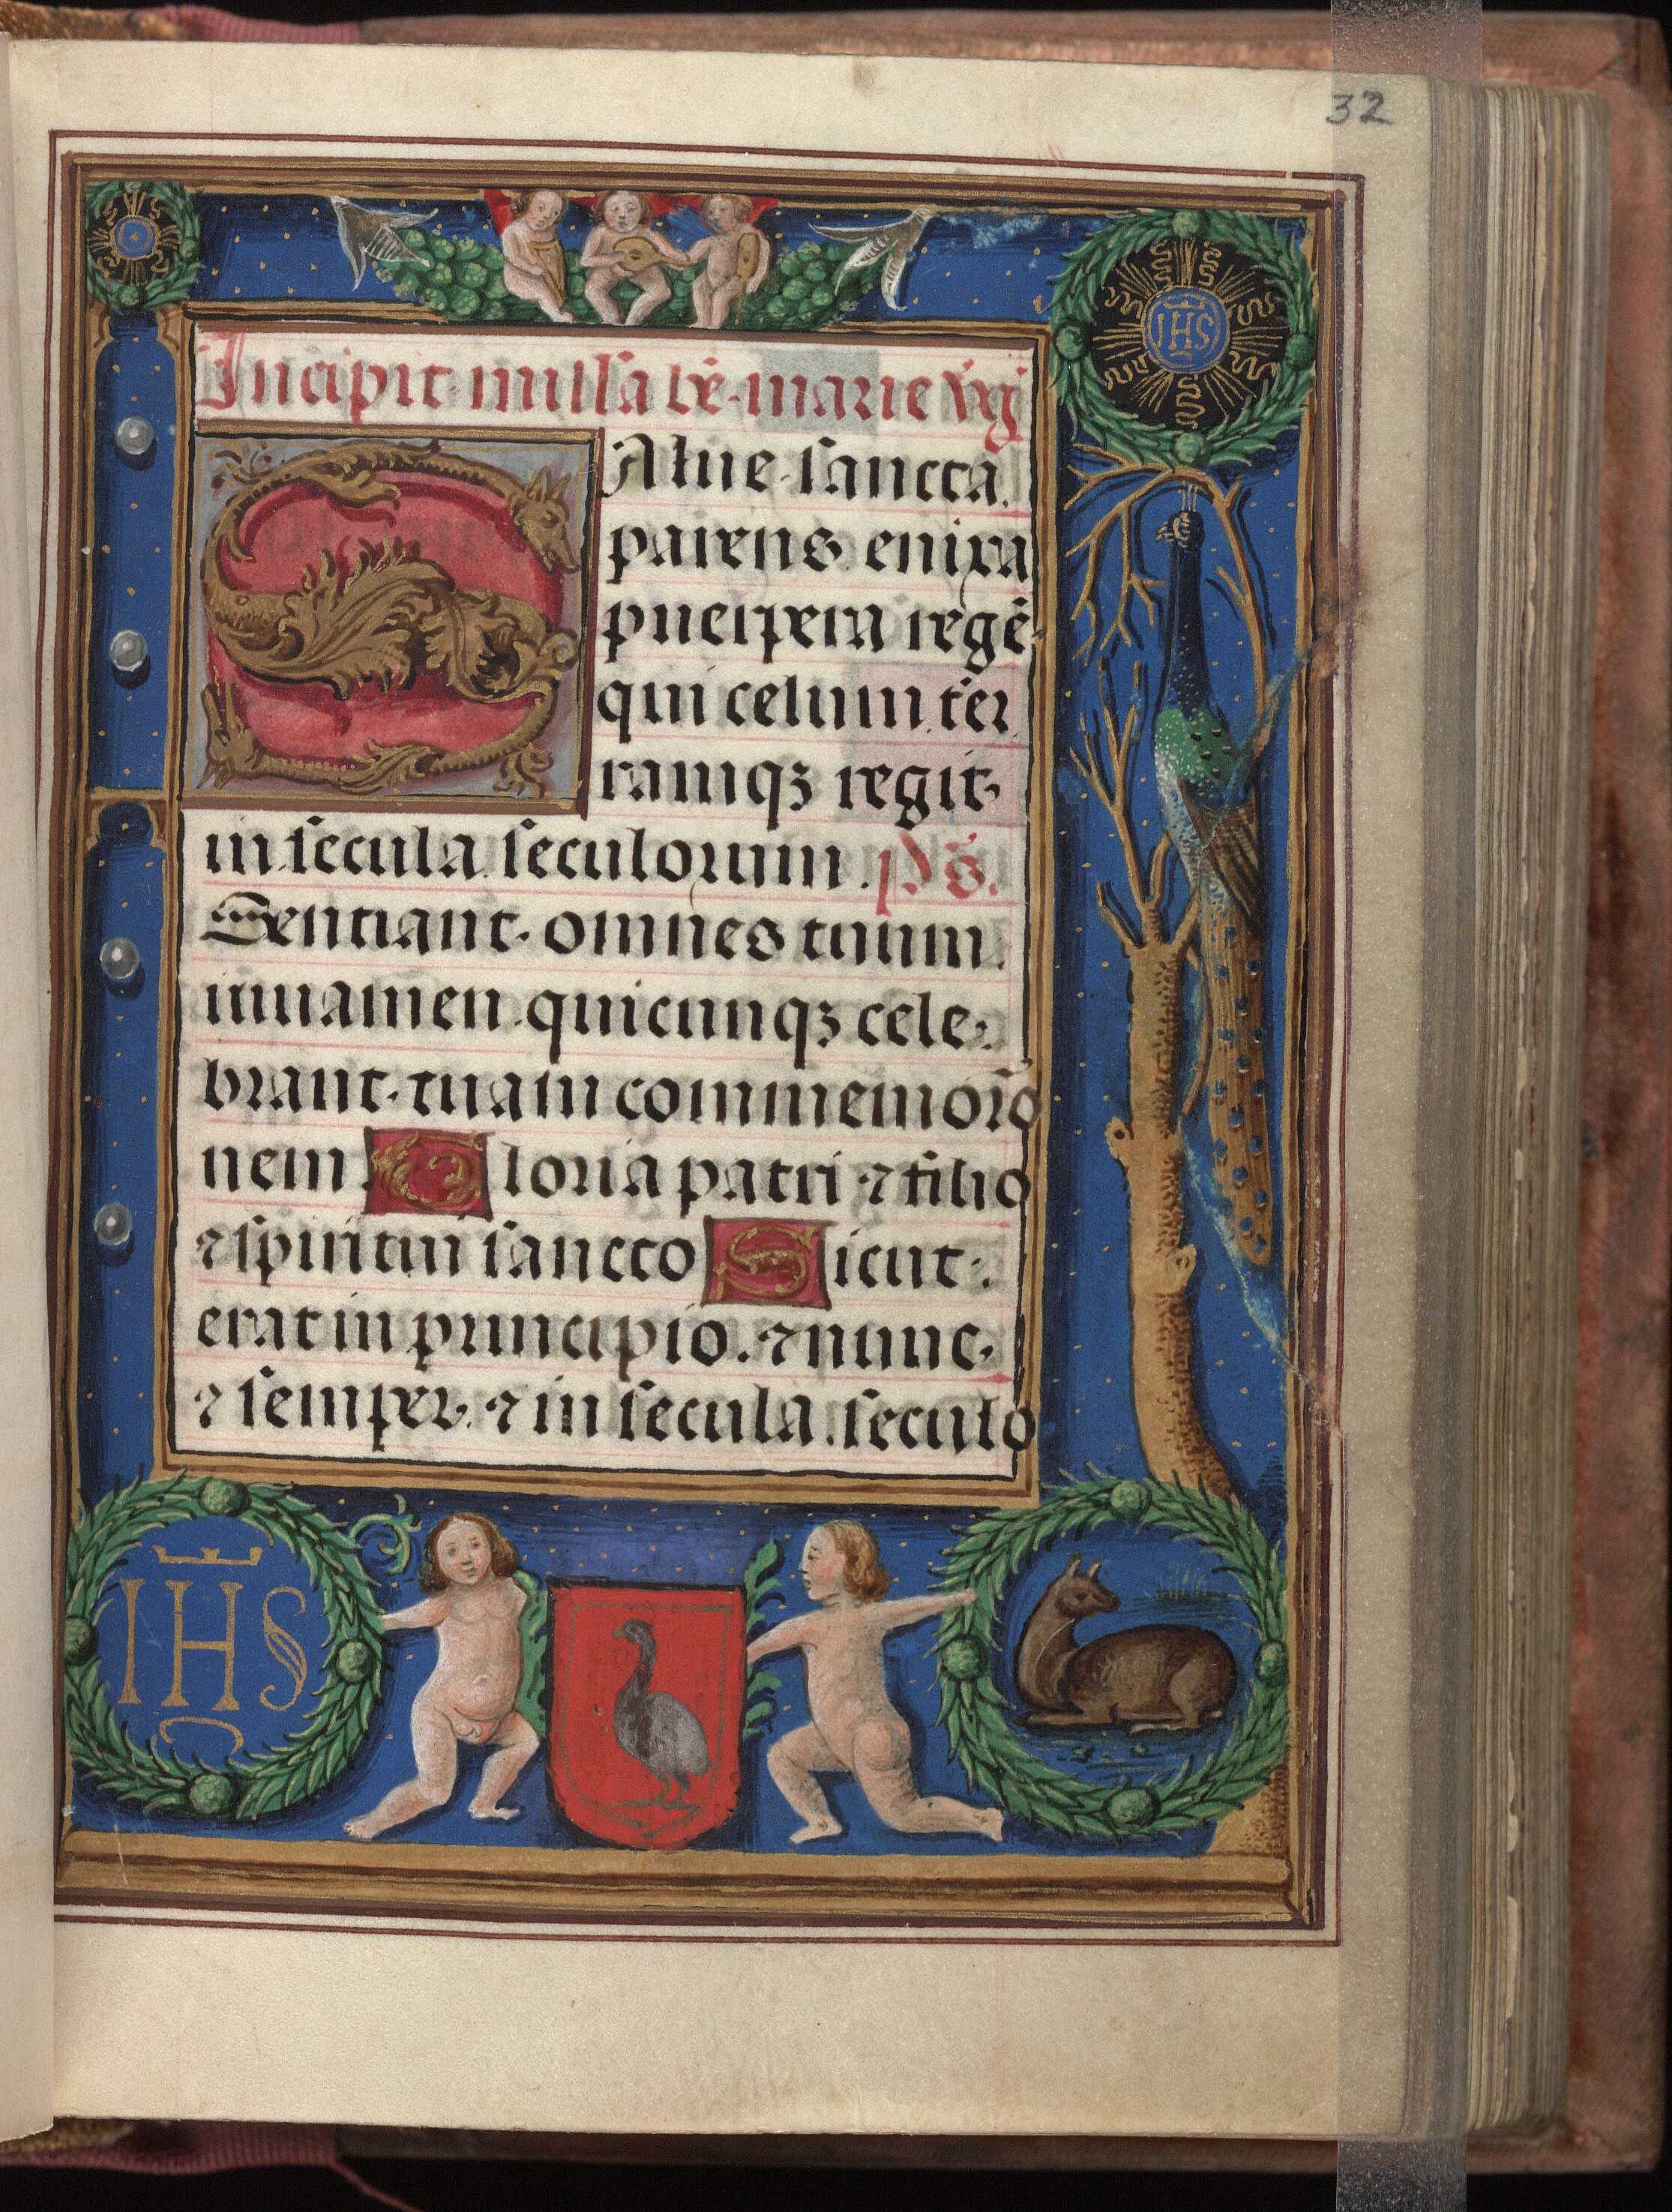 32
IHS
Incipit missa bē marie v̄ig
SAlue sancta
parens enixa
puerpera regē
qui celum ter
ramqꝫ regit
in secula seculorum. Ps.
Sentiant omnes tuum
iuuamen quicunqꝫ cele
brant tuam commemorō
nem Gloria patri ⁊ filio
⁊ spiritui sancto Sicut
erat in principio. ⁊ nunc
⁊ semper ⁊ in secula seculo
IHS